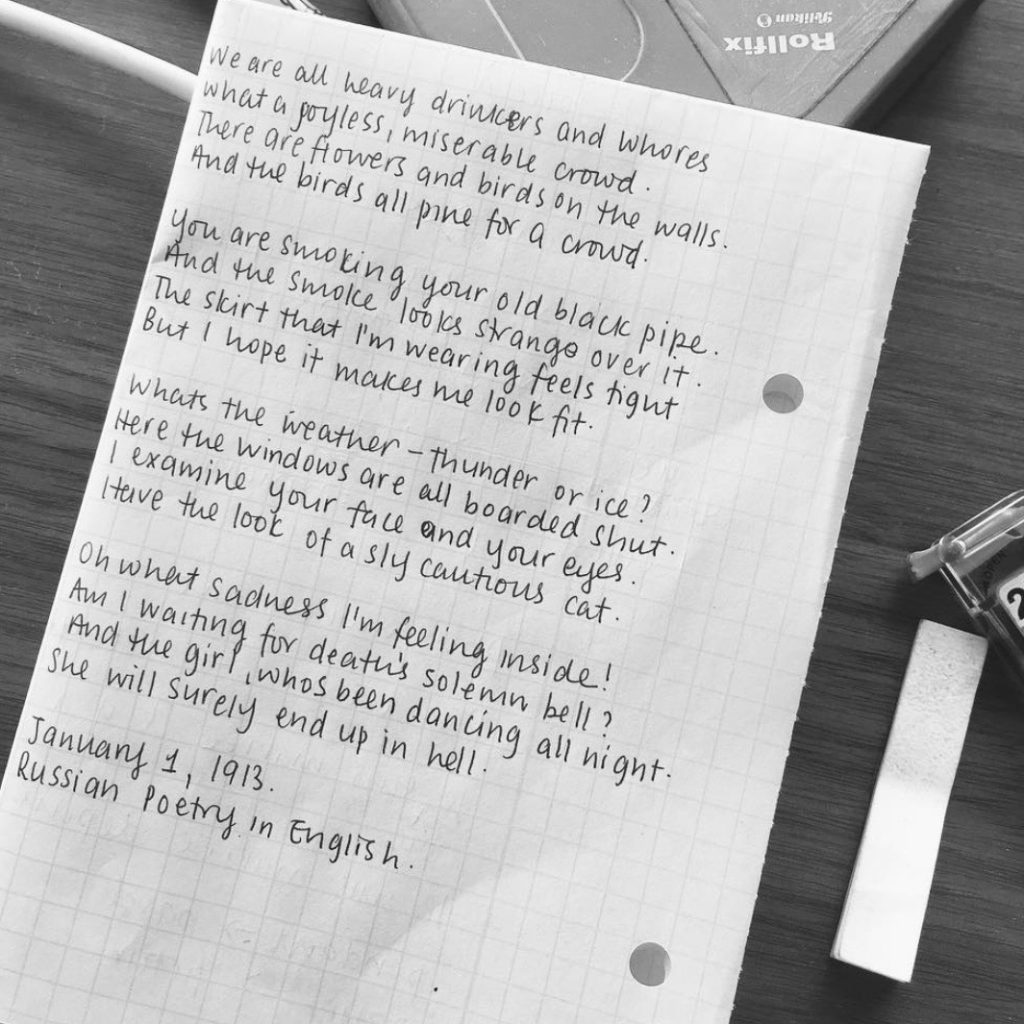 Rollfix
Pelikan
We are all heavy drinkers and whores
what a joyless, miserable crowd.
There are flowers and birds on the walls.
And the birds all pine for a crowd.
You are smoking your old black pipe.
And the smoke looks strange over it.
The skirt that I'm wearing feels tight
But I hope it makes me look fit.
Whats the weather - thunder or ice?
Here the windows are all boarded shut.
I examine your face and your eyes.
Have the look of a sly cautious cat.
Oh what sadness I'm feeling inside!
Am I waiting for death's solemn bell?
And the girl, whos been dancing all night.
She will surely end up in hell.
January 1, 1913.
Russian Poetry in English.
2